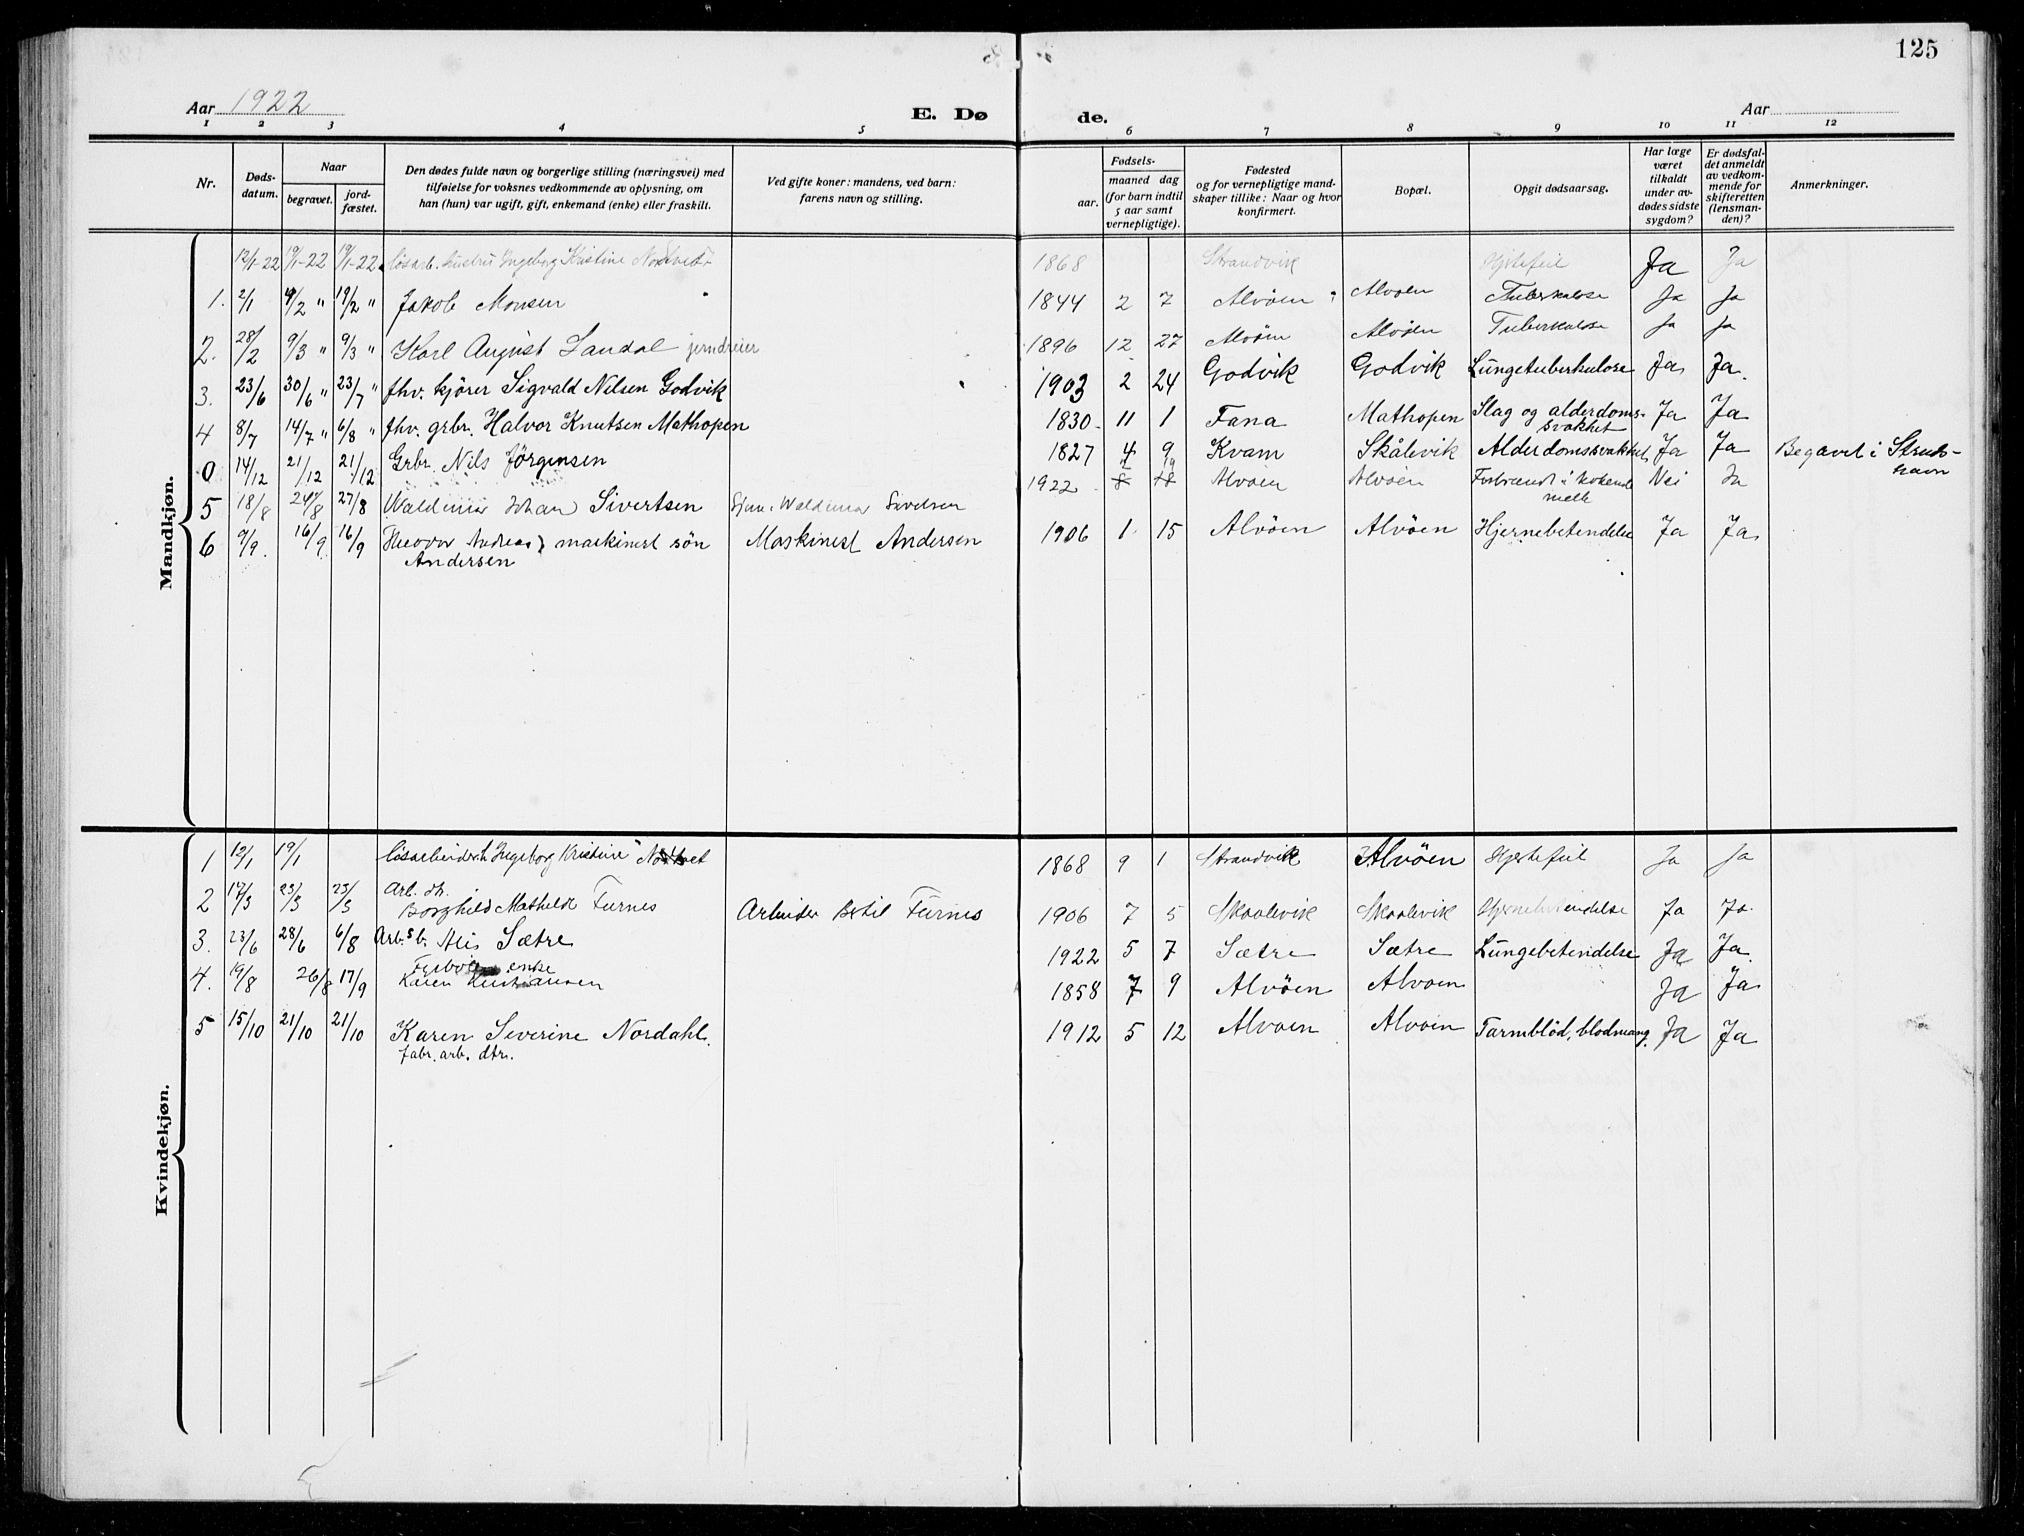 125
Aar 1922
E. Dø
de.
Aar
1 2 3 4 5 6 7 8 9 10 11 12
Nr.
Døds-
datum.
Naar
begravet.
jord-
fæstet.
Den dødes fulde navn og borgerlige stilling (næringsvei) med
tilføielse for voksnes vedkommende av oplysning, om
han (hun) var ugift, gift, enkemand (enke) eller fraskilt.
Ved gifte koner: mandens, ved barn:
farens navn og stilling.
Fødsels-
aar.
maaned dag
(for barn indtil
5 aar samt
vernepligtige).
Fødested
og for vernepligtige mand-
skaper tillike: Naar og hvor
konfirmert.
Bopæl.
Opgit dødsaarsag.
Har læge
været
tilkaldt
under av-
dødes sidste
sygdom?
Er dødsfal-
det anmeldt
av vedkom-
mende for
skifteretten
(lensman-
den)?
Anmerkninger.
Mandkjøn.
12/1-22 19/1-22 19/1-22 løsarb. hustru Ingeborg Kristine Nordtvet 1868 Strandvik Hjertefeil Ja Ja
1. 2/1 9/2 " 19/2 " Jakob Monsen 1844 2 7 Alvöen Alvöen Tuberkulose Ja Ja
2. 28/2 9/3 " 9/3 " Karl August Sandal jerndreier 1896 12 27 Alvöen Alvöen Tuberkulose Ja Ja
3. 23/6 30/6 " 23/7 " fhv. kjörer Sigvald Nilsen Godvik 1903 2 24 Godvik Godvik Lungetuberkulose Ja Ja.
4 8/7 14/7 " 6/8 " fhv. grbr. Halvor Knutsen Mathopen 1830 11 1 Fana Mathopen Slag og alderdoms-
svakhet Ja Ja
0 14/12 21/12 21/12 Grbr. Nils Jörgensen 1827 4 9 Kvam Skålevik Alderdomssvakhet Ja Ja Begavet i Strus-
havn
5 18/8 24/8 27/8 Waldemar Johan Sivertsen Waldemar Sivertsen 1922 2 19 8 18 Alvöen Alvöen Forbrændt i kokende
melk Nei Ja
6 9/9. 16/9 16/9 Theodor Andreas maskinist sön
Andersen Maskinist Andersen 1906 1 15 Alvöen Alvöen Hjernebetendelse Ja Ja
Kvindekjøn.
1 12/1 19/1 løsarbeider h. Ingeborg Kristine Nordtvet 1868 9 1 Strandvik Alvöen Hjertefeil Ja Ja
2 17/3 23/3 23/3 Arb. dtr.
Borghild Mathilde Furnes Arbeider Bertil Furnes 1906 7 5 Skaalevik Skaalevik Hjernebetendelse Ja Ja
3. 23/6 28/6 6/8 Arb.s b. Alis Sætre 1922 5 7 Sætre Sætre Lungebetendelse Ja Ja
4. 19/8 26/8 17/9 enke
Karen Kristiansen 1858 7 9 Alvöen Alvöen Ja Ja
5 15/10 21/10 21/10 Karen Severine Nordahl. 1912 5 12 Alvöen Alvöen Tarmblöd, blodmang. Ja Ja
fabr. arb. dtr.